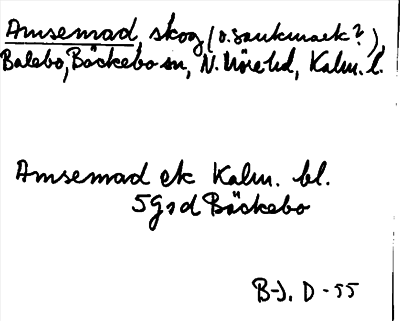 Amsemad, skog (o. sankmark?),
Balebo, Bäckebo sn, N. Möre hd, Kalm. l.
Amsemad ek Kalm. bl.
5g7d Bäckebo
B-J. D-55